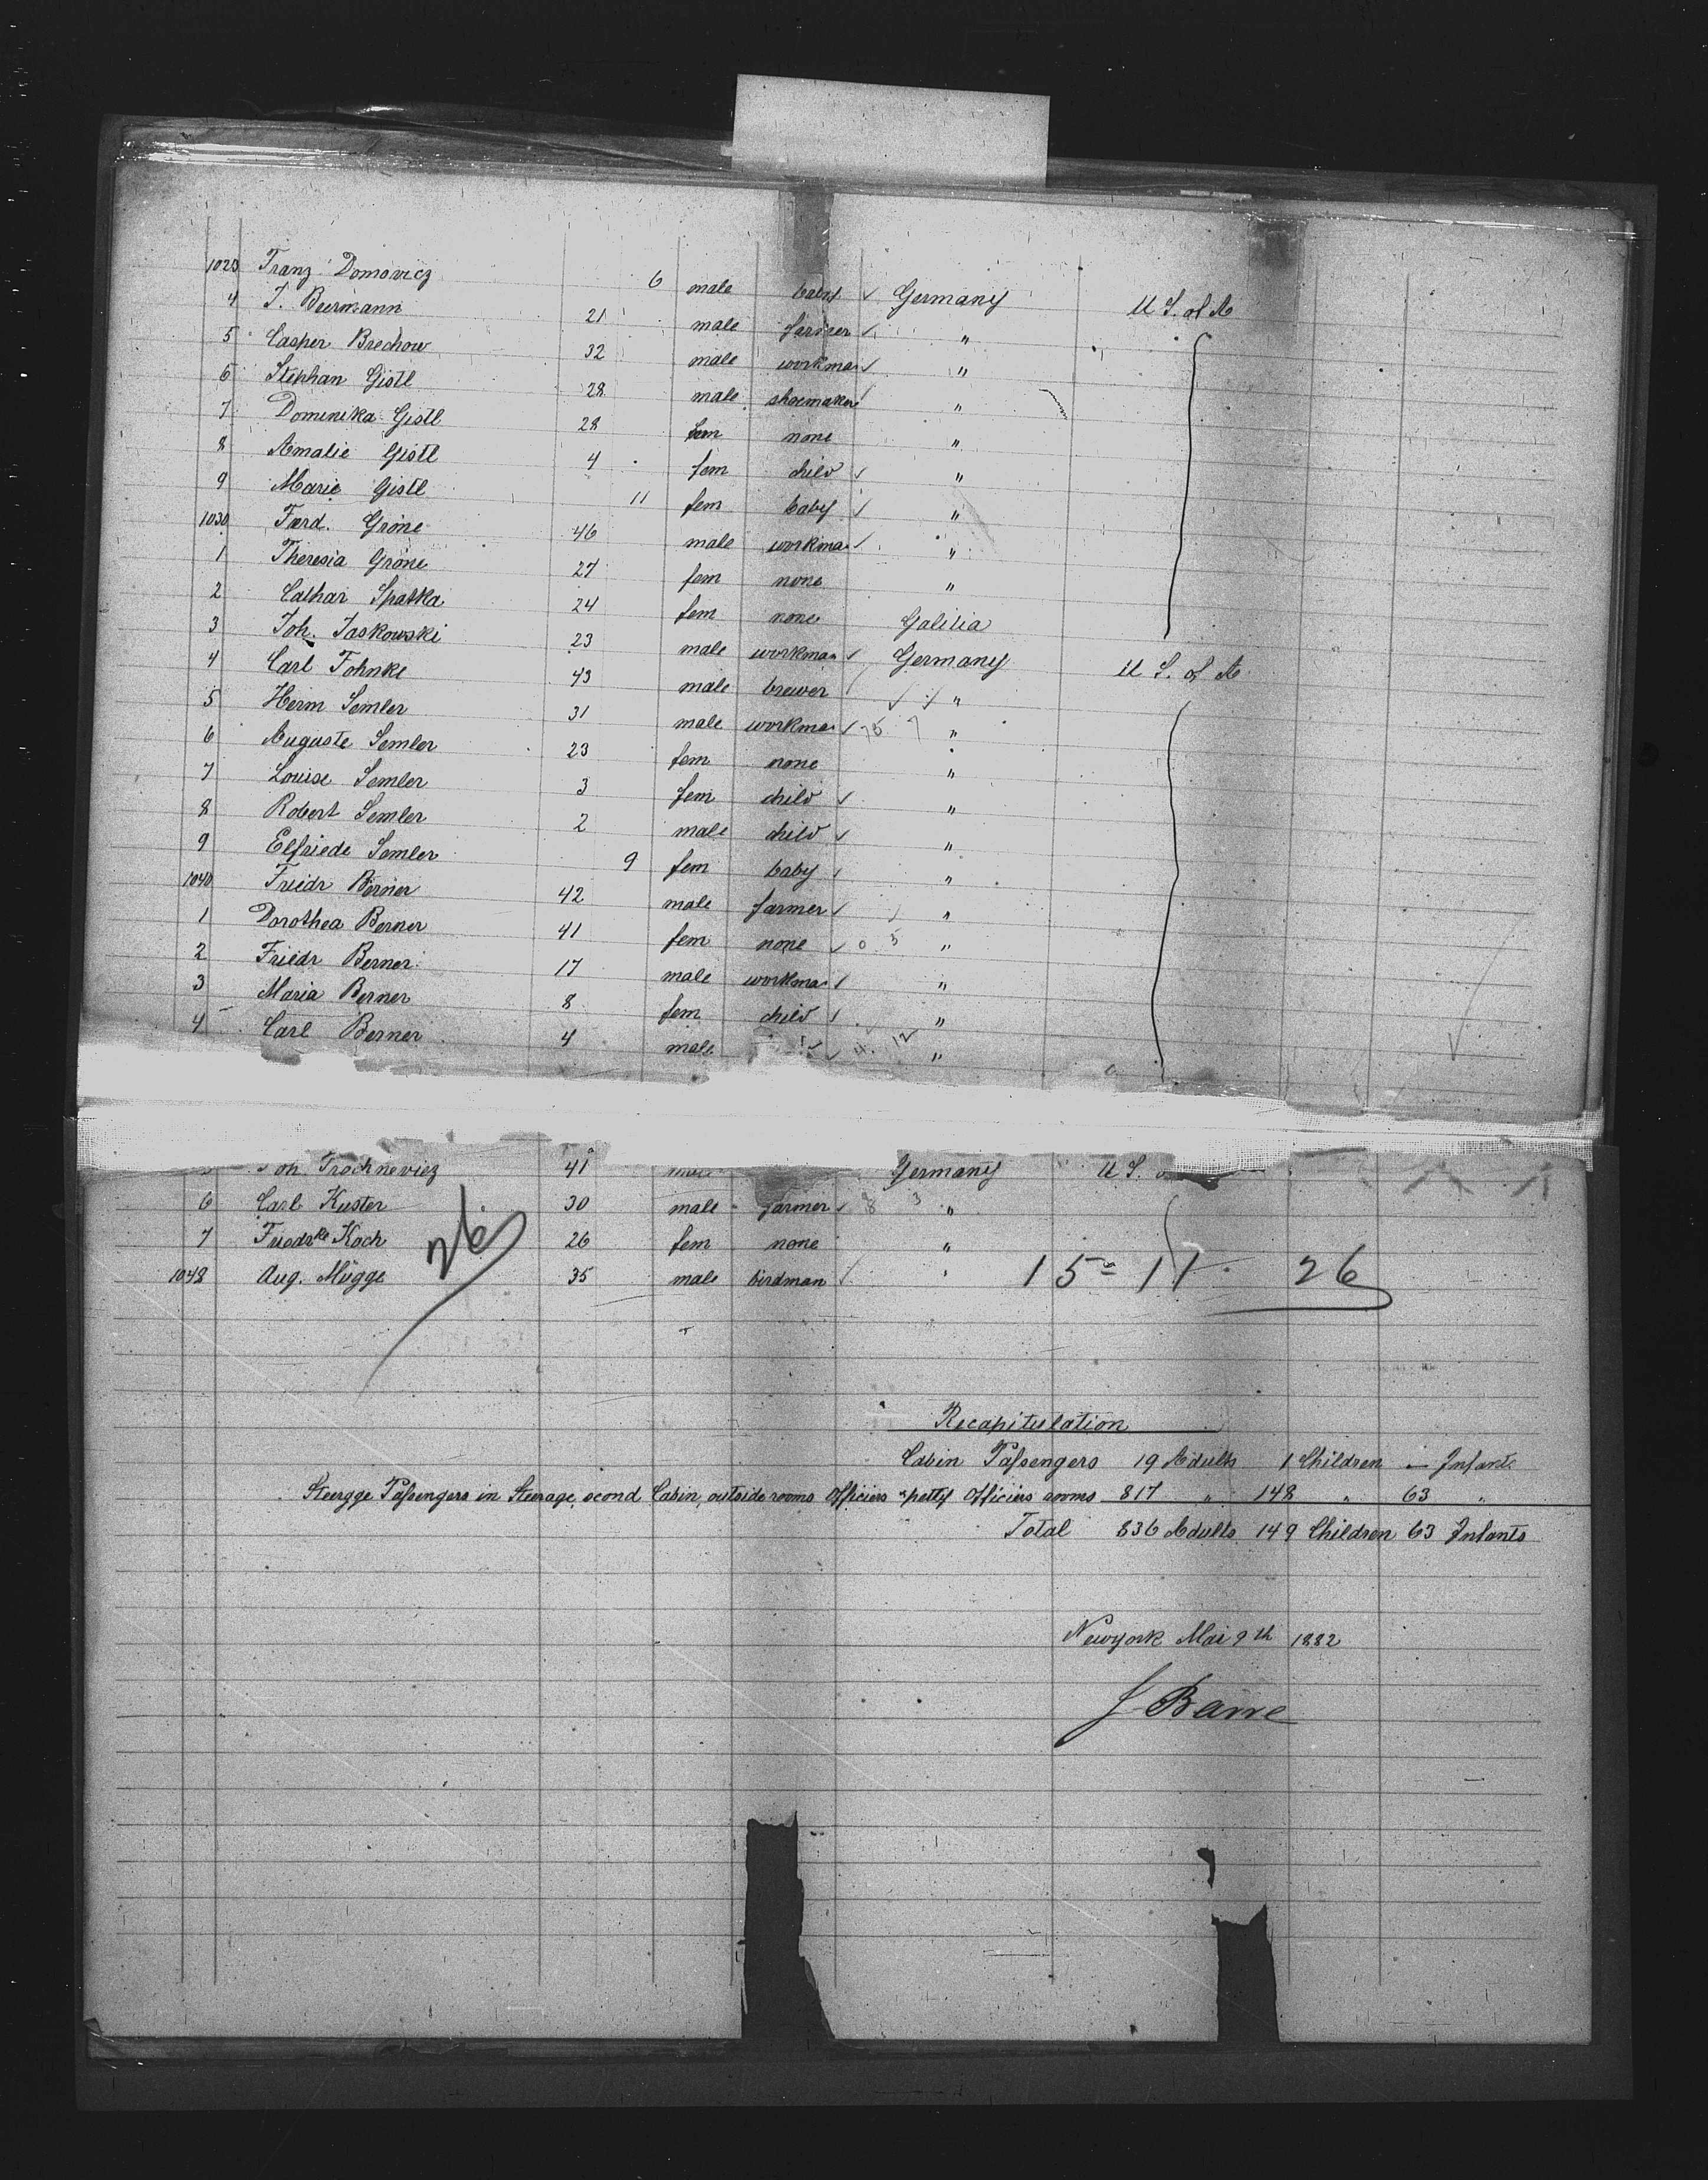 1023 Franz Domovicz 6 male baby Germany U S. of A
4 J. Beermann 21 male farmer "
5 Casper Brechow 32 male workman "
6 Stephan Gistl 28 male shoemaker "
7 Dominika Gistl 28 fem none "
8 Amalie Gistl 4 fem child "
9 Marie Gistl 11 fem baby "
1030 Ferd. Gröne 46 male workman "
1 Theresia Gröne 27 fem none "
2 Cathar Spatka 24 fem none Galilia
3 Joh. Jaskowski 23 male workman Germany U S. of A
4 Carl Fohnke 43 male brewer "
5 Herm Semler 31 male workman "
6 Auguste Semler 23 fem none "
7 Louise Semler 3 fem child "
8 Robert Semler 2 male child "
9 Elfriede Semler 9 fem baby "
1040 Friedr Berner 42 male farmer "
1 Dorothea Berner 41 fem none "
2 Friedr Berner 17 male workman "
3 Maria Berner 8 fem child "
4 Carl Berner 4 male "
Joh Trochneviez 41 Germany U S.
6 Carl Kuster 30 male farmer "
7 Friedrke Koch 26 fem none "
1048 Aug. Mügge 35 male birdman "
26
15 = 11 26
Recapitulation
Cabin Passengers 19 Adults 1 Children — Infants
Steergge Passengers in Steerage, econd Cabin, outside rooms Officiers & petty Officiers rooms 817 " 148 " 63 "
Total 836 Adults 149 Children 63 Infants
Newyork Mai 9th 1882
J Barre